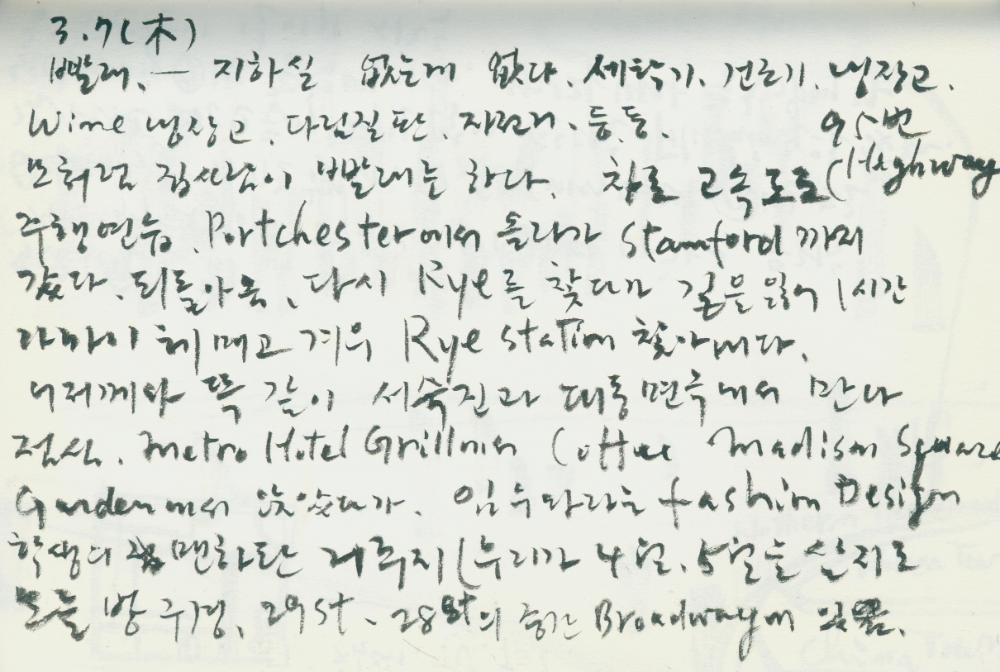 3.7(木)
빨래. — 지하실 없는게 없다. 세탁기. 건조기. 냉장고.
Wine 냉장고. 다림질판. 자전거. 등등. 95번
모처럼 집사람이 빨래를 하다. 차로 고속도로(Highway
주행연습. Portchester에서 올라가 Stamford 까지
갔다. 되돌아옴. 다시 Rye를 찾다가 길을 잃어 1시간
가까이 헤메고 겨우 Rye station 찾아내다.
어저께와 똑 같이 서숙진과 대동면옥에서 만나
점심. Metro Hotel Grill에서 Coffee Madison Square
Garden에서 앉았다가. 임 라는 fashion Design
학생의 맨하탄 거주지(우리가 4월. 5월을 살지도
모를 방 구경. 29st. 28st의 중간 Broadway에 있음.